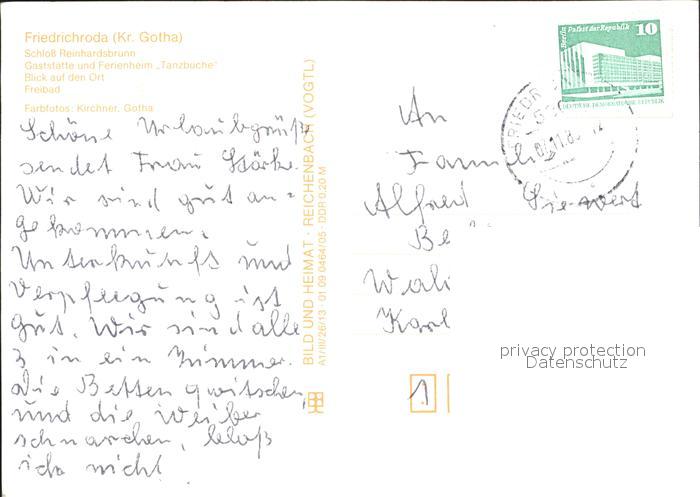 Friedrichroda (Kr. Gotha)
Schloß Reinhardsbrunn
Gaststätte und Ferienheim „Tanzbuche"
Blick auf den Ort
Freibad
Farbfotos: Kirchner, Gotha
Schöne Urlaubgrüße
sendet Frau Stärke.
Wir sind gut an=
gekommen.
Unterkunft und
Verpflegung ist
gut. Wir sind alle
3 in ein Zimmer.
die Betten qwitschen,
und die Weiber
schnarchen, bloß
ich nicht
BILD UND HEIMAT · REICHENBACH (VOGTL)
A1/III/26/13 · 01 09 0464/05 · DDR 0,20 M
Berlin Palast der Republik
10
DEUTSCHE DEMOKRATISCHE REPUBLIK
FRIEDR
An
Familie
Alfred Siewert
Be
Wali
Karl
1
privacy protection
Datenschutz